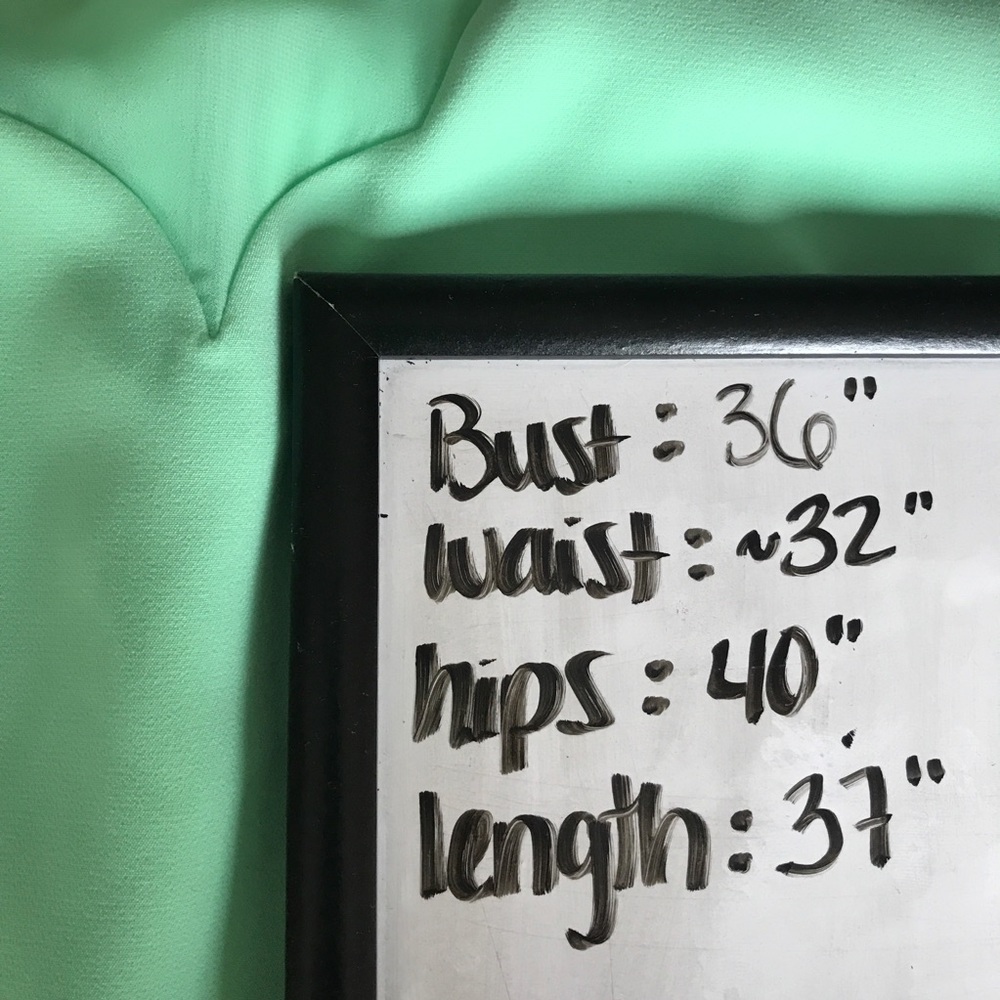 Bust: 36"
waist: ~32"
hips: 40"
length: 37"